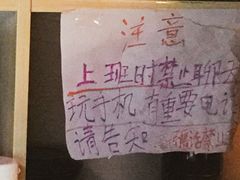 注意
上班时禁止聊天
玩手机有重要电话
请告知